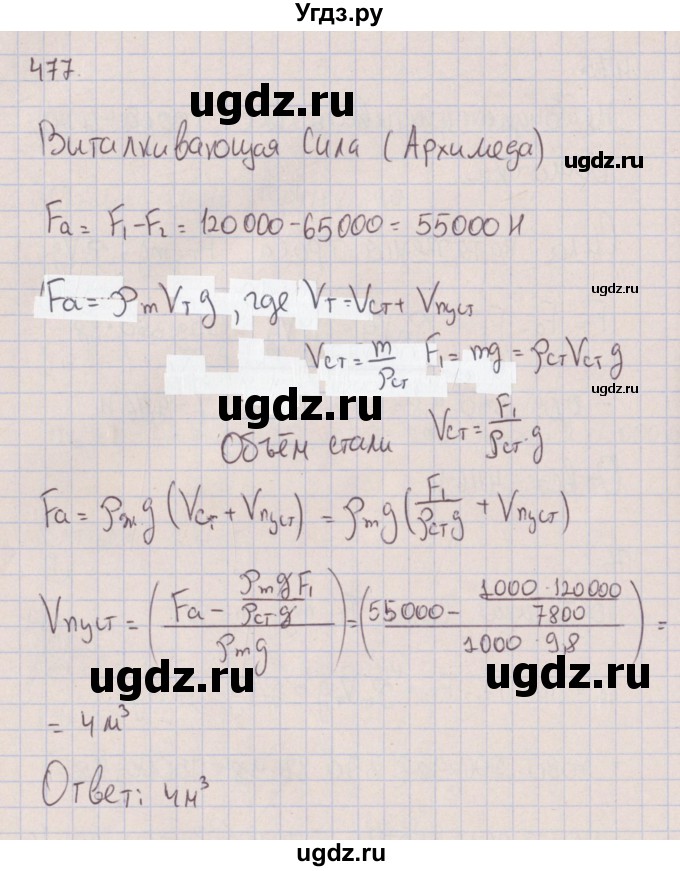 Угдз.ру
477.
ugdz.ru
Виталкивающая Сила (Архимеда)
ugdz.ru
Fa = F₁-F₂ = 120000-65000 = 55000 Н
ugdz.ru
Fa = ρm Vт g, где Vт = Vст + Vпуст
Vст = m/ρст F₁ = mg = ρст Vст g
ugdz.ru
ugdz.ru
Объём стали Vст = F₁/(ρст·g)
Fa = ρж g (Vст + Vпуст) = ρm g (F₁/(ρст g) + Vпуст)
ugdz.ru
Vпуст = ((Fa - ρm g F₁/(ρст g))/(ρm g)) = ((55000 - 1000·120000/7800)/(1000·9,8)) =
ugdz.ru
ugdz.ru
= 4м³
Ответ: 4м³
ugdz.ru
ugdz.ru